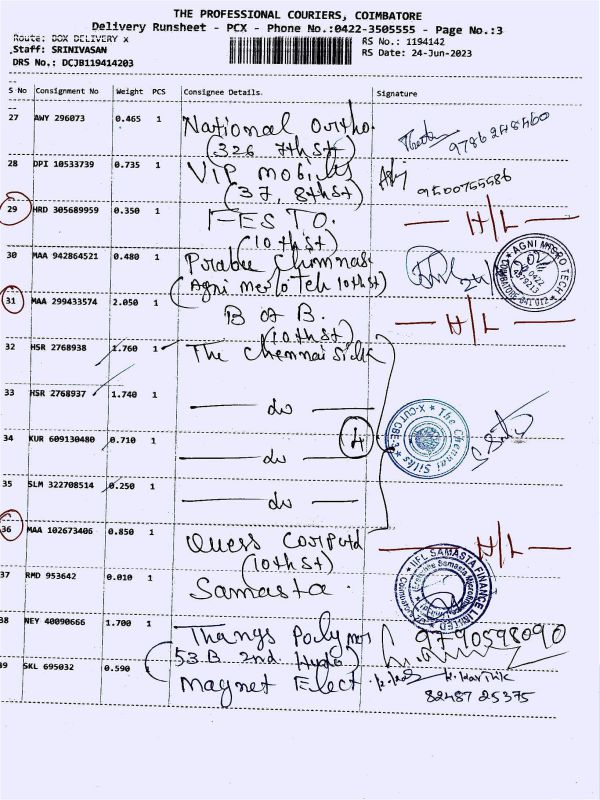 THE PROFESSIONAL COURIERS, COIMBATORE
Delivery Runsheet - PCX - Phone No.:0422-3505555 - Page No.:3
Route: BOX DELIVERY x
RS No.: 1194142
Staff: SRINIVASAN
RS Date: 24-Jun-2023
DRS No.: DCJB119414203
S No Consignment No Weight PCS Consignee Details. Signature
27 AWY 296073 0.465 1 National Ortho.
(326 7th st)
9786248460
28 DPI 10533739 0.735 1 VIP mobiles
(37, 8th st)
29 HRD 305689959 0.350 1 FESTO.
(10th st)
H/L
30 MAA 942864521 0.480 1 Prabu
(Agni 10th st)
AGNI MICRO TECH
31 MAA 299433574 2.050 1 B of B.
(10th st)
H/L
32 HSR 2768938 1.760 1 The Chennai Silk
33 HSR 2768937 1.740 1 — do —
34 KUR 609130480 0.710 1 — do —
4
The Chennai Silks
X-CUT CBE-2
35 SLM 322708514 0.250 1 — do —
36 MAA 102673406 0.850 1 Quess
(10th st)
H/L
37 RMD 953642 0.010 1 Samasta.
IIFL SAMASTA FINANCE LIMITED
38 NEY 40090666 1.700 1 Thangs Polymers
(53.B 2nd
9790598090
39 SKL 695032 0.590 1 Magnet Elect
K. Karthik
82487 25375